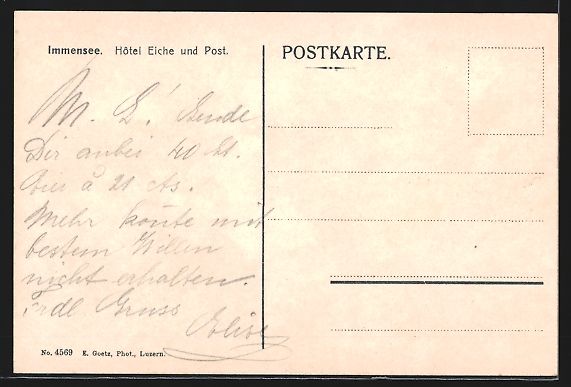 Immensee. Hôtel Eiche und Post.
POSTKARTE.
M. L! Sende
Dir anbei 40 St.
Eier à 21 cts.
Mehr konte mit
bestem Willen
nicht erhalten.
Frdl Gruss
Elise
No. 4569 E. Goetz, Phot., Luzern.